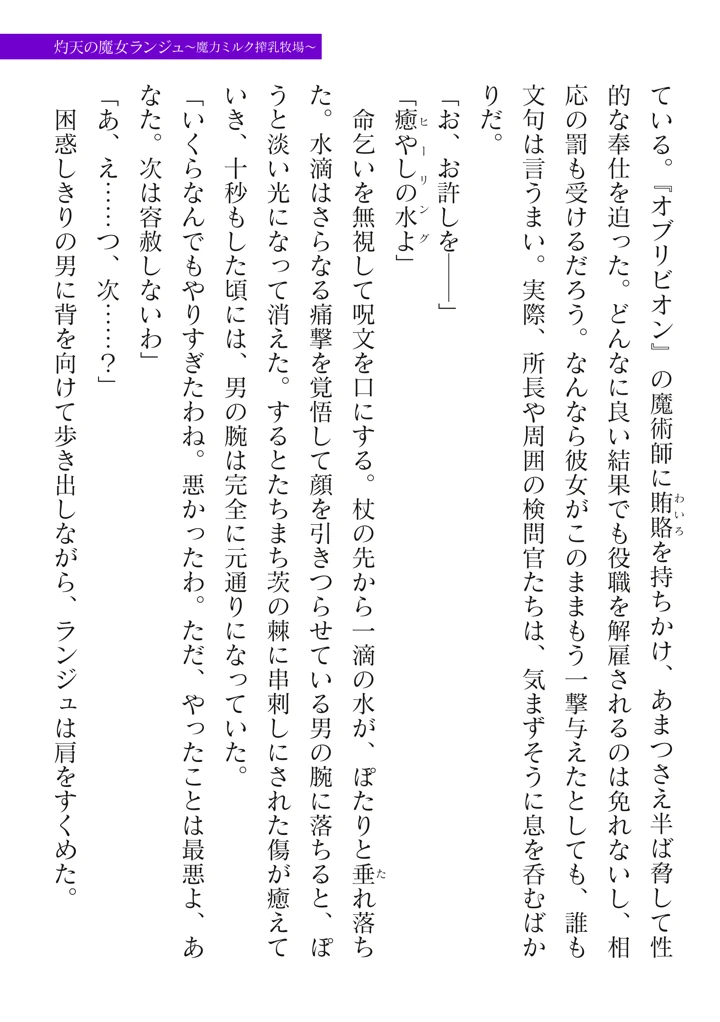 灼天の魔女ランジュ～魔力ミルク搾乳牧場～
ている。『オブリビオン』の魔術師に賄賂を持ちかけ、あまつさえ半ば脅して性
わいろ
的な奉仕を迫った。どんなに良い結果でも役職を解雇されるのは免れないし、相
応の罰も受けるだろう。なんなら彼女がこのままもう一撃与えたとしても、誰も
文句は言うまい。実際、所長や周囲の検問官たちは、気まずそうに息を呑むばか
りだ。
「お、お許しを――」
「癒やしの水よ」
ヒーリング
命乞いを無視して呪文を口にする。杖の先から一滴の水が、ぽたりと垂れ落ち
た
た。水滴はさらなる痛撃を覚悟して顔を引きつらせている男の腕に落ちると、ぽ
うと淡い光になって消えた。するとたちまち茨の棘に串刺しにされた傷が癒えて
いき、十秒もした頃には、男の腕は完全に元通りになっていた。
「いくらなんでもやりすぎたわね。悪かったわ。ただ、やったことは最悪よ、あ
なた。次は容赦しないわ」
「あ、え……つ、次……？」
困惑しきりの男に背を向けて歩き出しながら、ランジュは肩をすくめた。